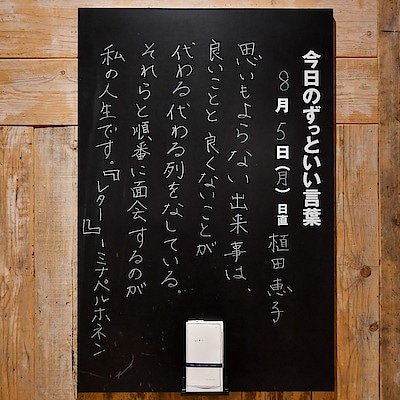 今日のずっといい言葉
8月5日(月) 日直 植田恵子
思いもよらない出来事は、
良いことと良くないことが
代わる代わる列をなしている。
それらと順番に面会するのが
私の人生です。『レター』-ミナペルホネン